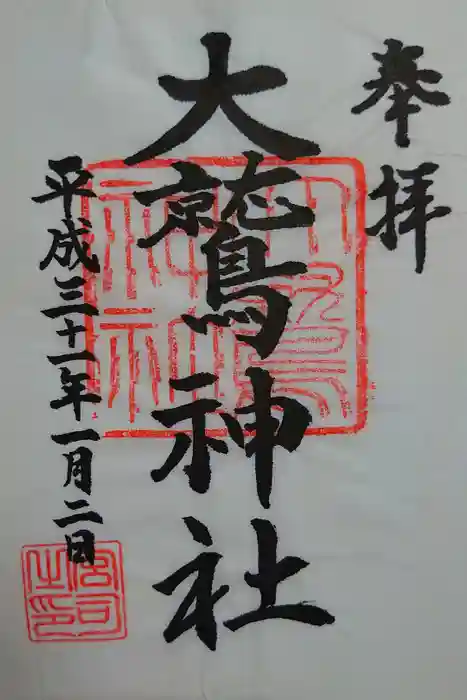 奉拝
大鷲神社
平成三十一年一月二日
宮司之印